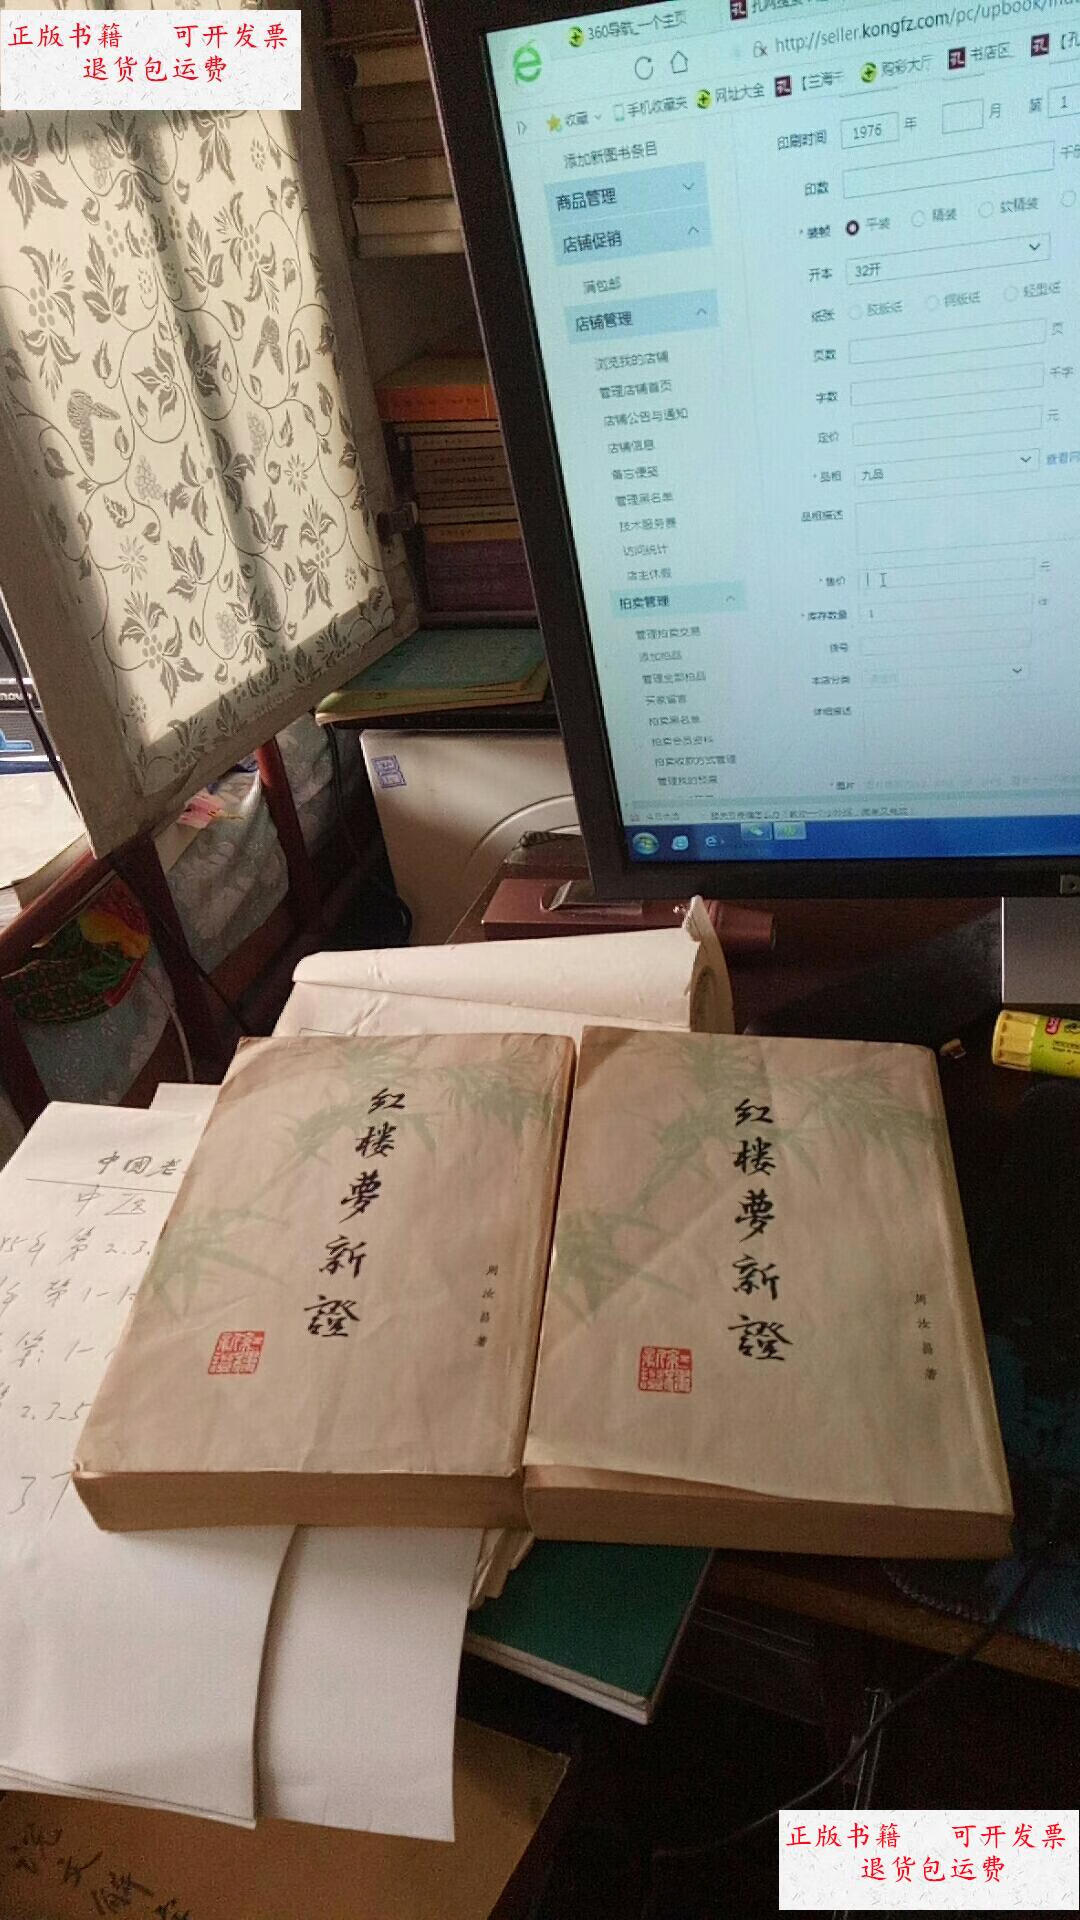 正版书籍 可开发票
退货包运费
360导航_一个主页
http://seller.kongfz.com/pc/upbook/
收藏
手机收藏夹
网址大全
购彩大厅
书店区
添加新图书条目
商品管理
店铺促销
满包邮
店铺管理
浏览我的店铺
管理店铺首页
店铺公告与通知
店铺信息
备忘便笺
管理黑名单
技术服务费
访问统计
店主休假
拍卖管理
管理拍卖交易
添加拍品
管理全部拍品
买家留言
拍卖黑名单
拍卖会员资料
拍卖收款方式管理
管理我的预展
印刷时间 1976 年 月 第 1
印数 千册
*装帧 平装 精装 软精装
开本 32开
纸张 胶版纸 铜版纸 轻型纸
页数 页
字数 千字
定价 元
*品相 九品
品相描述
*售价 元
*库存数量 1
货号
本店分类
详细描述
*图片
红楼夢新證
周汝昌著
红楼夢新證
周汝昌著
中国老
中医
正版书籍 可开发票
退货包运费